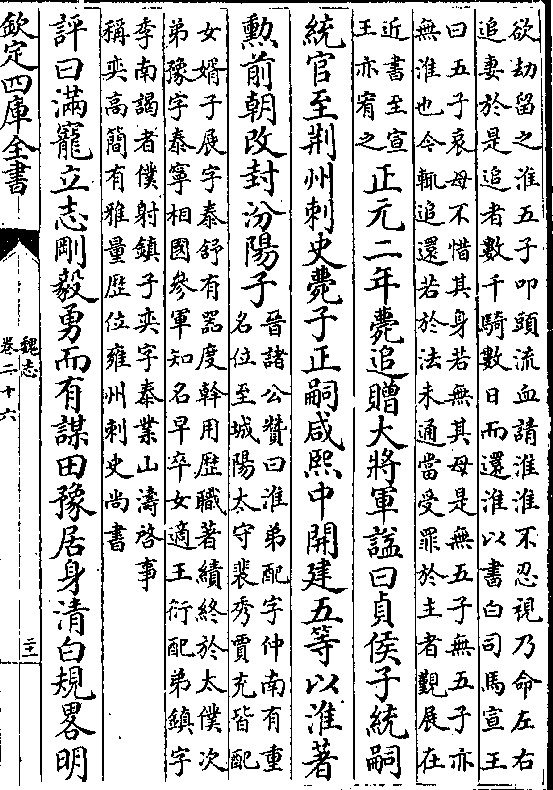 欲劫留之淮五子叩頭流血請淮淮不忍視乃命左右
追妻於是追者數千騎數日而還淮以書白司馬宣王
曰五子哀母不惜其身若無其母是無五子無五子亦
無淮也今輒追還若於法未通當受罪於主者覲展在
近書至宣
王亦宥之
正元二年薨追贈大將軍諡曰貞侯子統嗣
統官至荆州刺史薨子正嗣咸熙中開建五等以淮著
勲前朝改封汾陽子
晉諸公贊曰淮弟配字仲南有重
名位至城陽太守裴秀賈充皆配
女婿子展字泰舒有器度幹用歴職著績終於太僕次
弟豫字泰寧相國參軍知名早卒女適王衍配弟鎮字
季南謁者僕射鎮子奕字泰業山濤啓事
稱奕高簡有雅量歴位雍州刺史尚書
評曰滿寵立志剛毅勇而有謀田豫居身清白規畧明
欽定四庫全書
魏志
卷二十六
二十